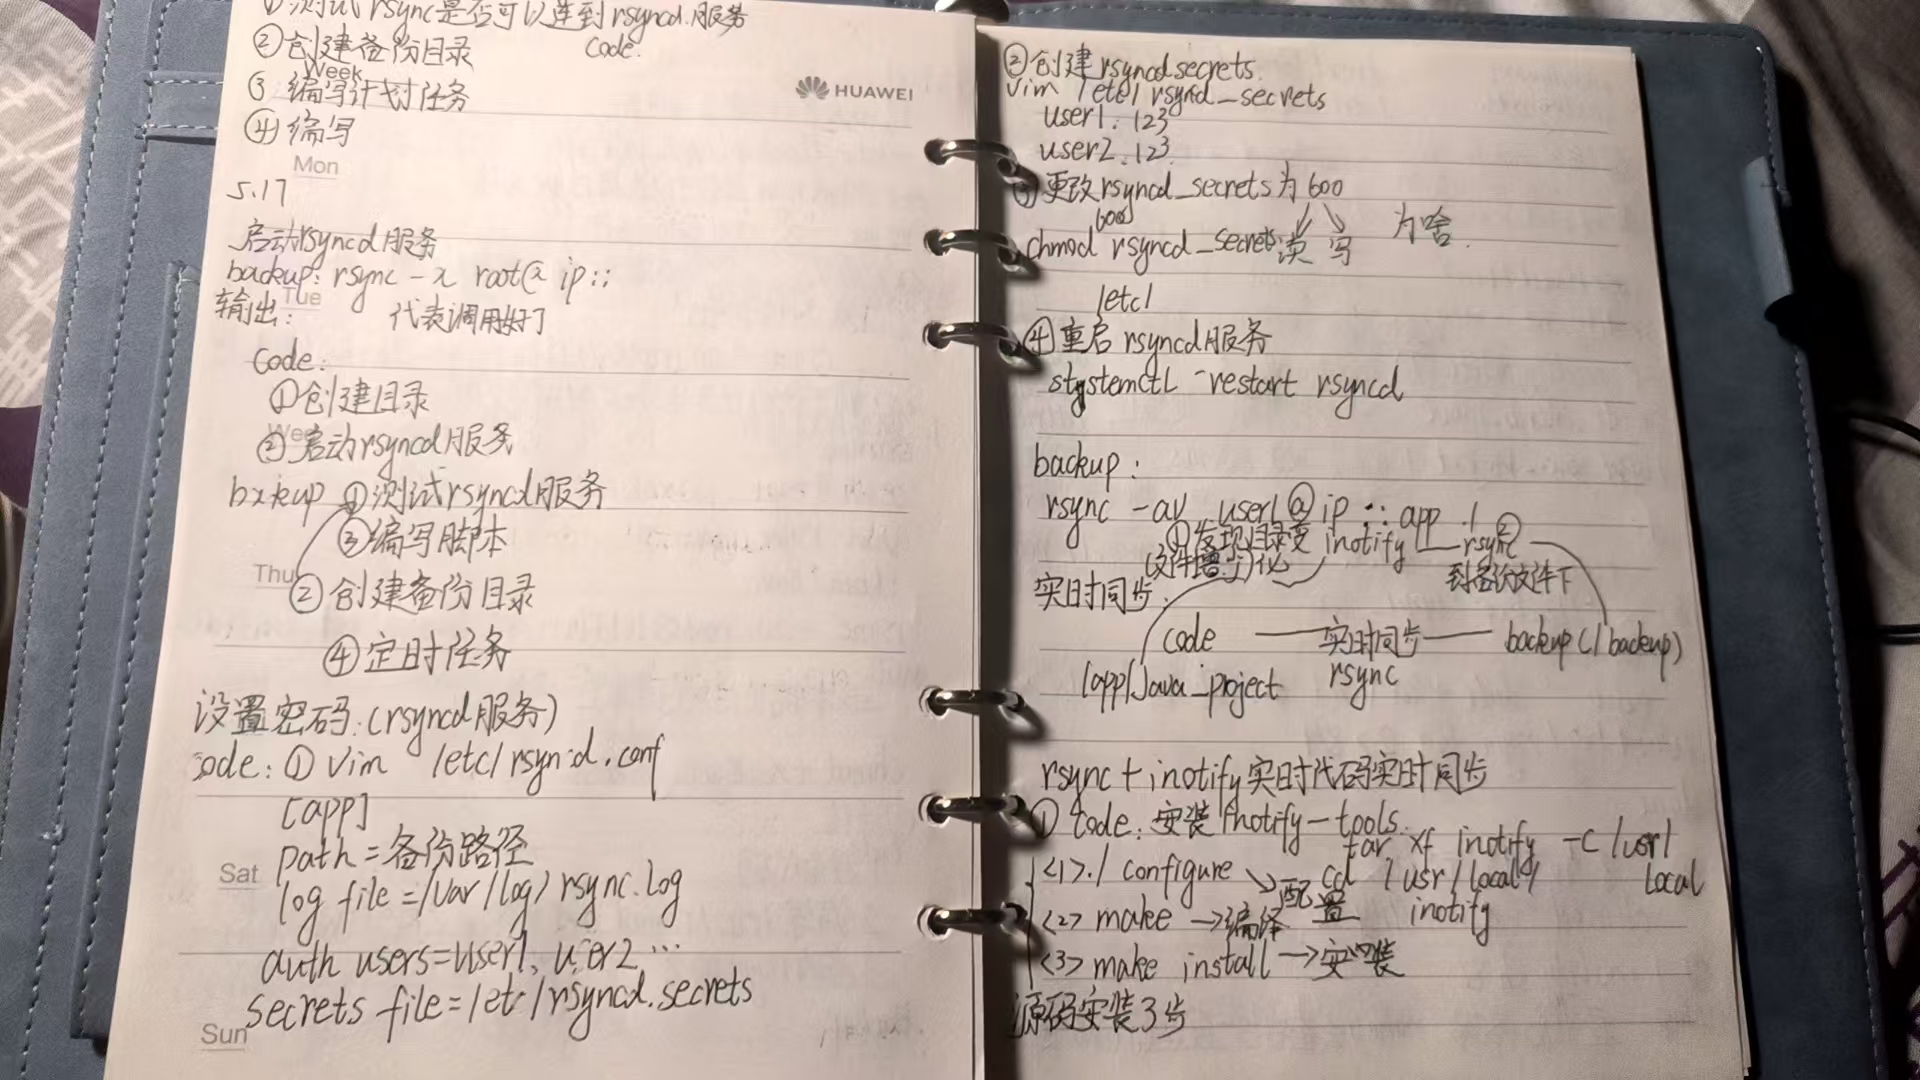 ①测试rsync是否可以连到rsyncd服务
②创建备份目录 code.
Week
③编写计划任务
HUAWEI
④编写
Mon
5.17
启动rsyncd服务
backup: rsync -x root@ ip::
Tue
输出: 代表调用好了
code:
①创建目录
Wed
②启动rsyncd服务
backup ①测试rsyncd服务
③编写脚本
Thu
②创建备份目录
④定时任务
设置密码:(rsyncd服务)
code: ① vim /etc/rsyncd.conf
[app]
path = 备份路径
Sat
log file = /var/log/rsync.log
auth users=user1, user2 ...
secrets file=/etc/rsyncd.secrets
Sun
②创建rsyncdsecrets.
vim /etc/rsyncd_secrets
user1: 123
user2:123
③更改rsyncd_secrets为600
600 为啥.
chmod rsyncd_secrets 读 写
/etc/
④重启rsyncd服务
stystemctl -restart rsyncd
backup:
rsync -av user1@ip::app ./
①发现目录变 inotify rsync ②
(文件增 )化 到备份文件下
实时同步.
code 实时同步 backup(/backup)
/app/java_project rsync
rsync+inotify实时代码实时同步
① code: 安装inotify-tools.
tar xf inotify -C /usr/
<1>./configure 配置 cd /usr/local/ local
<2> make →编译 inotify
<3> make install →安装
源码安装3步